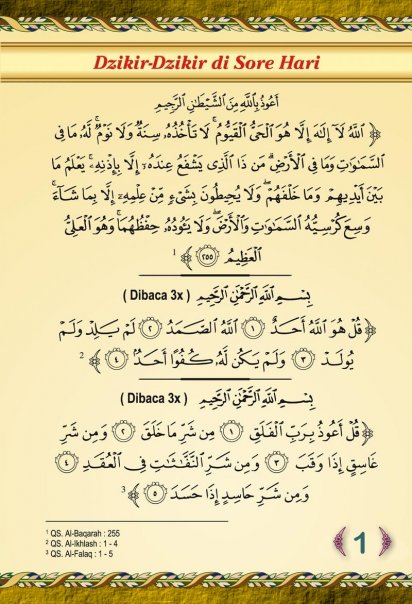 Dzikir-Dzikir di Sore Hari
أَعُوذُ بِاللَّهِ مِنَ الشَّيْطَانِ الرَّجِيمِ
﴿ اللَّهُ لَآ إِلَٰهَ إِلَّا هُوَ الْحَيُّ الْقَيُّومُ ۚ لَا تَأْخُذُهُۥ سِنَةٌ وَلَا نَوْمٌ ۚ لَّهُۥ مَا فِى
السَّمَٰوَٰتِ وَمَا فِى الْأَرْضِ ۗ مَن ذَا الَّذِى يَشْفَعُ عِندَهُۥٓ إِلَّا بِإِذْنِهِۦ ۚ يَعْلَمُ مَا
بَيْنَ أَيْدِيهِمْ وَمَا خَلْفَهُمْ ۖ وَلَا يُحِيطُونَ بِشَىْءٍ مِّنْ عِلْمِهِۦٓ إِلَّا بِمَا شَآءَ ۚ
وَسِعَ كُرْسِيُّهُ السَّمَٰوَٰتِ وَالْأَرْضَ ۖ وَلَا يَـُٔودُهُۥ حِفْظُهُمَا ۚ وَهُوَ الْعَلِىُّ
الْعَظِيمُ ٢٥٥ ﴾ 1
بِسْمِ اللَّهِ الرَّحْمَٰنِ الرَّحِيمِ ( Dibaca 3x )
﴿ قُلْ هُوَ اللَّهُ أَحَدٌ ١ اللَّهُ الصَّمَدُ ٢ لَمْ يَلِدْ وَلَمْ
يُولَدْ ٣ وَلَمْ يَكُن لَّهُۥ كُفُوًا أَحَدٌۢ ٤ ﴾ 2
بِسْمِ اللَّهِ الرَّحْمَٰنِ الرَّحِيمِ ( Dibaca 3x )
﴿ قُلْ أَعُوذُ بِرَبِّ الْفَلَقِ ١ مِن شَرِّ مَا خَلَقَ ٢ وَمِن شَرِّ
غَاسِقٍ إِذَا وَقَبَ ٣ وَمِن شَرِّ النَّفَّٰثَٰتِ فِى الْعُقَدِ ٤
وَمِن شَرِّ حَاسِدٍ إِذَا حَسَدَ ٥ ﴾ 3
1 QS. Al-Baqarah : 255
2 QS. Al-Ikhlash : 1 - 4
3 QS. Al-Falaq : 1 - 5
1